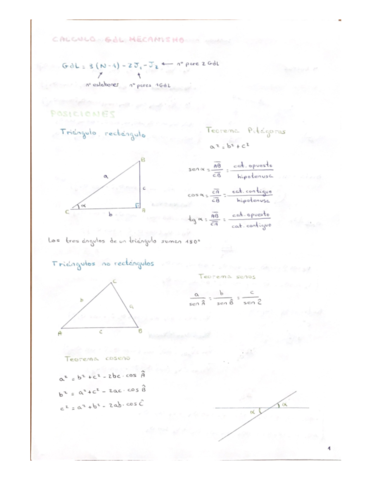 CALCULO GDL MECANISMO
GDL = 3(N-1) - 2J₁ - J₂ ← nº pares 2 GdL
nº eslabones nº pares 1GDL
POSICIONES
Triángulo rectángulo
Teorema Pitágoras
a² = b² + c²
B
a
c
C
α
b
A
sen α = AB / CB = cat. opuesto / hipotenusa
cos α = CA / CB = cat. contiguo / hipotenusa
tg α = AB / CA = cat. opuesto / cat. contiguo
Los tres ángulos de un triángulo suman 180º
Triángulos no rectángulos
Teorema senos
C
b
a
A
c
B
a / sen Â = b / sen B̂ = c / sen Ĉ
Teorema coseno
a² = b² + c² - 2bc · cos Â
b² = a² + c² - 2ac · cos B̂
c² = a² + b² - 2ab · cos Ĉ
α
α